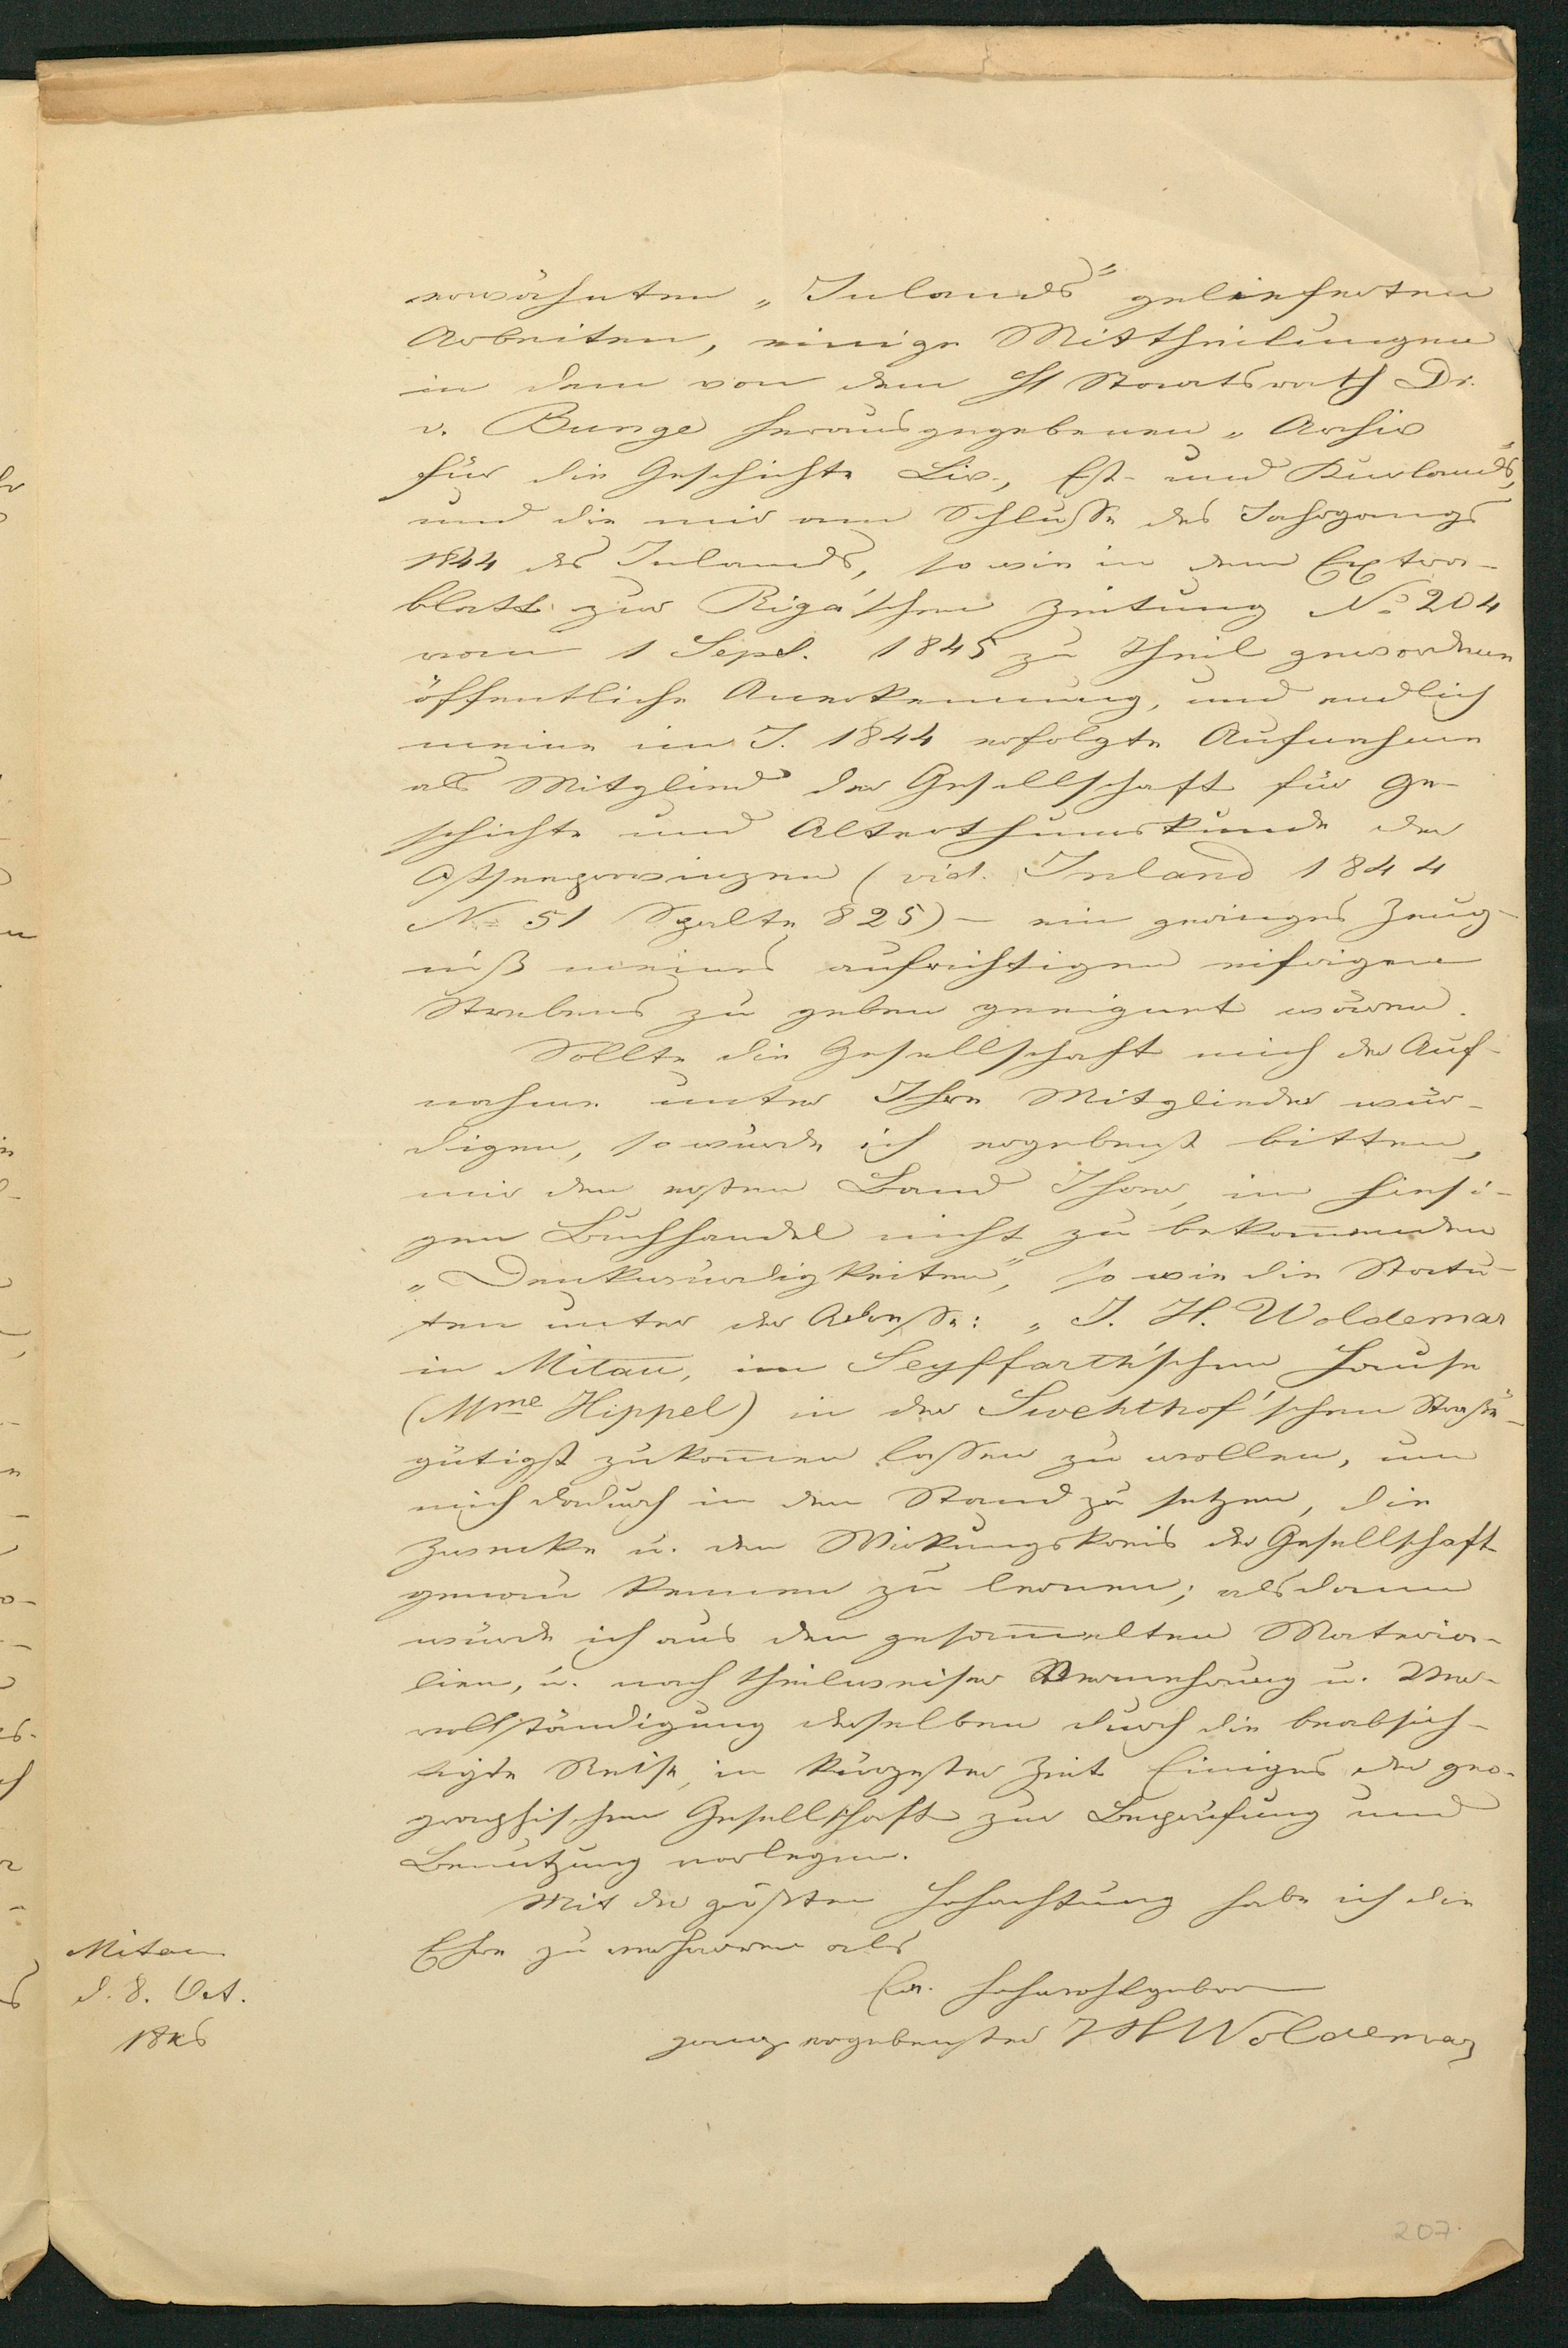 erwähnten „Inlands" gelieferten
Arbeiten, einige Mittheilungen
in dem von dem H Staatsrath Dr.
v. Bunge herausgegebenen „Archiv
für die Geschichte Liv-, Est- und Kurlands",
und die mir am Schluße des Jahrgangs
1844 des Inlands, so wie in dem Extra-
blatt zur Riga'schen Zeitung No 204
vom 1 Sept. 1845 zu Theil gewordene
öffentliche Anerkennung, und endlich
meine im J. 1844 erfolgte Aufnahme
als Mitglied der Gesellschaft für Ge-
schichte und Alterthumskunde der
Ostseeprovinzen (vid. Inland 1844
No 51 Spalte 825) – ein geringes Zeug-
niß meines aufrichtigen eifrigen
Strebens zu geben geeignet wären.
Sollte die Gesellschaft mich der Auf-
nahme unter Ihre Mitglieder wür-
digen, so würde ich ergebenst bitten,
mir den ersten Band Ihrer, im hiesi-
gen Buchhandel nicht zu bekom̅enden
„Denkwürdigkeiten", so wie die Statu-
ten unter der Adresse: „J. H. Woldemar
in Mitau, im Seyffarth'schen Hause
(Mme Hippel) in der Swehthof'schen Straße
gütigst zukom̅en laßen zu wollen, um
mich dadurch in den Stand zu setzen, die
Zwecke u. den Wirkungskreis der Gesellschaft
genau kennen zu lernen; alsdann
würde ich aus den gesam̅elten Materia-
lien, u. nach theilweiser Vermehrung u. Ver-
vollständigung derselben durch die beabsich-
tigte Reise, in kürzester Zeit Einiges der geo-
graphischen Gesellschaft zur Beprüfung und
Benutzung vorlegen.
Mit der größten Hochachtung habe ich die
Ehre zu verharren als
Ew. Hochwohlgeboren
ganz ergebenster J H Woldemar
Mitau
d. 8. Oct.
207.